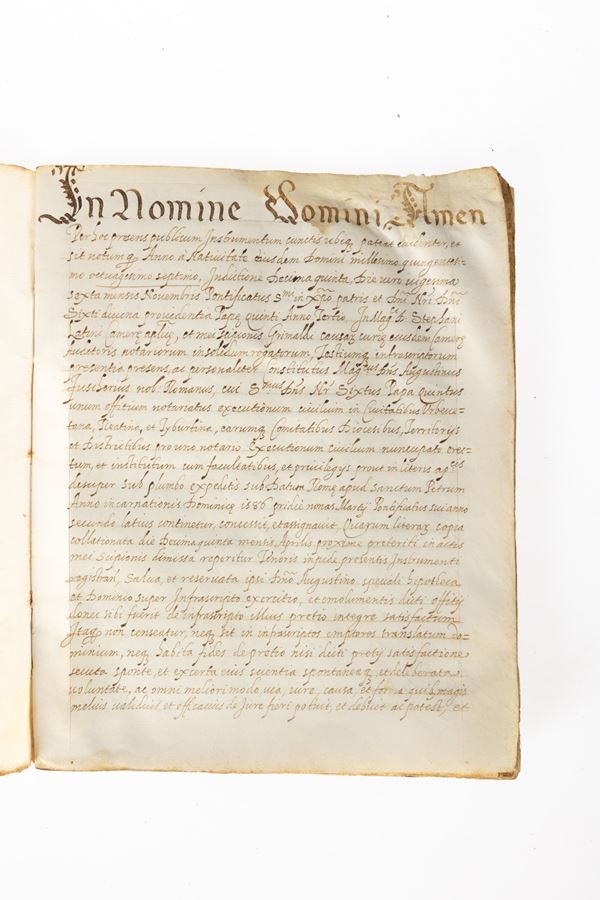 In Nomine Domini Amen
Per hoc presens publicum Instrumentum cunctis ubiq. pateat evidenter, et
sit notum q. Anno a Nativitate eiusdem Domini millesimo quingentesi-
mo octuagesimo septimo, Indictione decima quinta, Die vero vigesima
sexta mensis Novembris Pontificatus Smi in Xpo patris et Dni Nri Dni
Sixti divina providentia Papę quinti Anno Tertio. In Mag. D. Stephani
Latini Camerę aplicę, et mei Scipionis Grimaldi causar. curię eiusdem Camerę
Auditoris notariorum insolidum rogatorum, Testiumq. infrascriptorum
presentia presens, ac personaliter Constitutus Magcus Dns Augustinus
nob. Romanus, cui Smus Dns Nr Sixtus Papa quintus
unum offitium notariatus executionum civilium in Civitatibus Urbeve-
tana, Reatina, et Tyburtina, earumq. Comitatibus Diocesibus, Territorijs
et Districtibus pro uno notario Executionum civilium nuncupato erec-
tum, et institutum cum facultatibus, et privilegijs prout in literis apcis
desuper sub plumbo expeditis sub Datum Romę apud Sanctum Petrum
Anno incarnationis Dominicę 1586 pridie nonas Martij Pontificatus sui anno
secundo latius continetur, concessit, et assignavit. Quarum literar. copia
collationata die decimaquinta mensis Aprilis proxime preteriti in actis
mei Scipionis dimissa reperitur Tenoris in pede presentis Instrumenti
registran., Salva, et reservata ipsi Dno Augustino speciali hipotheca
et Dominio super Infrascripto exercitio, et emolumentis dicti offitij
donec sibi fuerit de infrascripto illius pretio integre satisfactum
Itaq. non censeatur, neq. sit in infrascriptos emptores translatum do-
minium, neq. habita fides de pretio nisi dicti pretij satisfactione
secuta sponte, et ex certa eius scientia spontaneaq. et deliberata
voluntate, ac omni meliori modo, via, iure, causa, et forma quib. magis
melius validius, et efficacius de Jure fieri potuit, et debuit ac potest, et